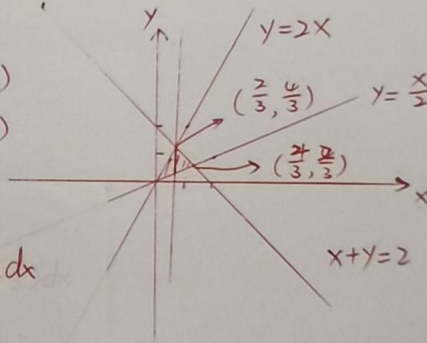 y
y=2x
)
(2/3, 4/3)
y=x/2
)
(4/3, 2/3)
x
x+y=2
dx